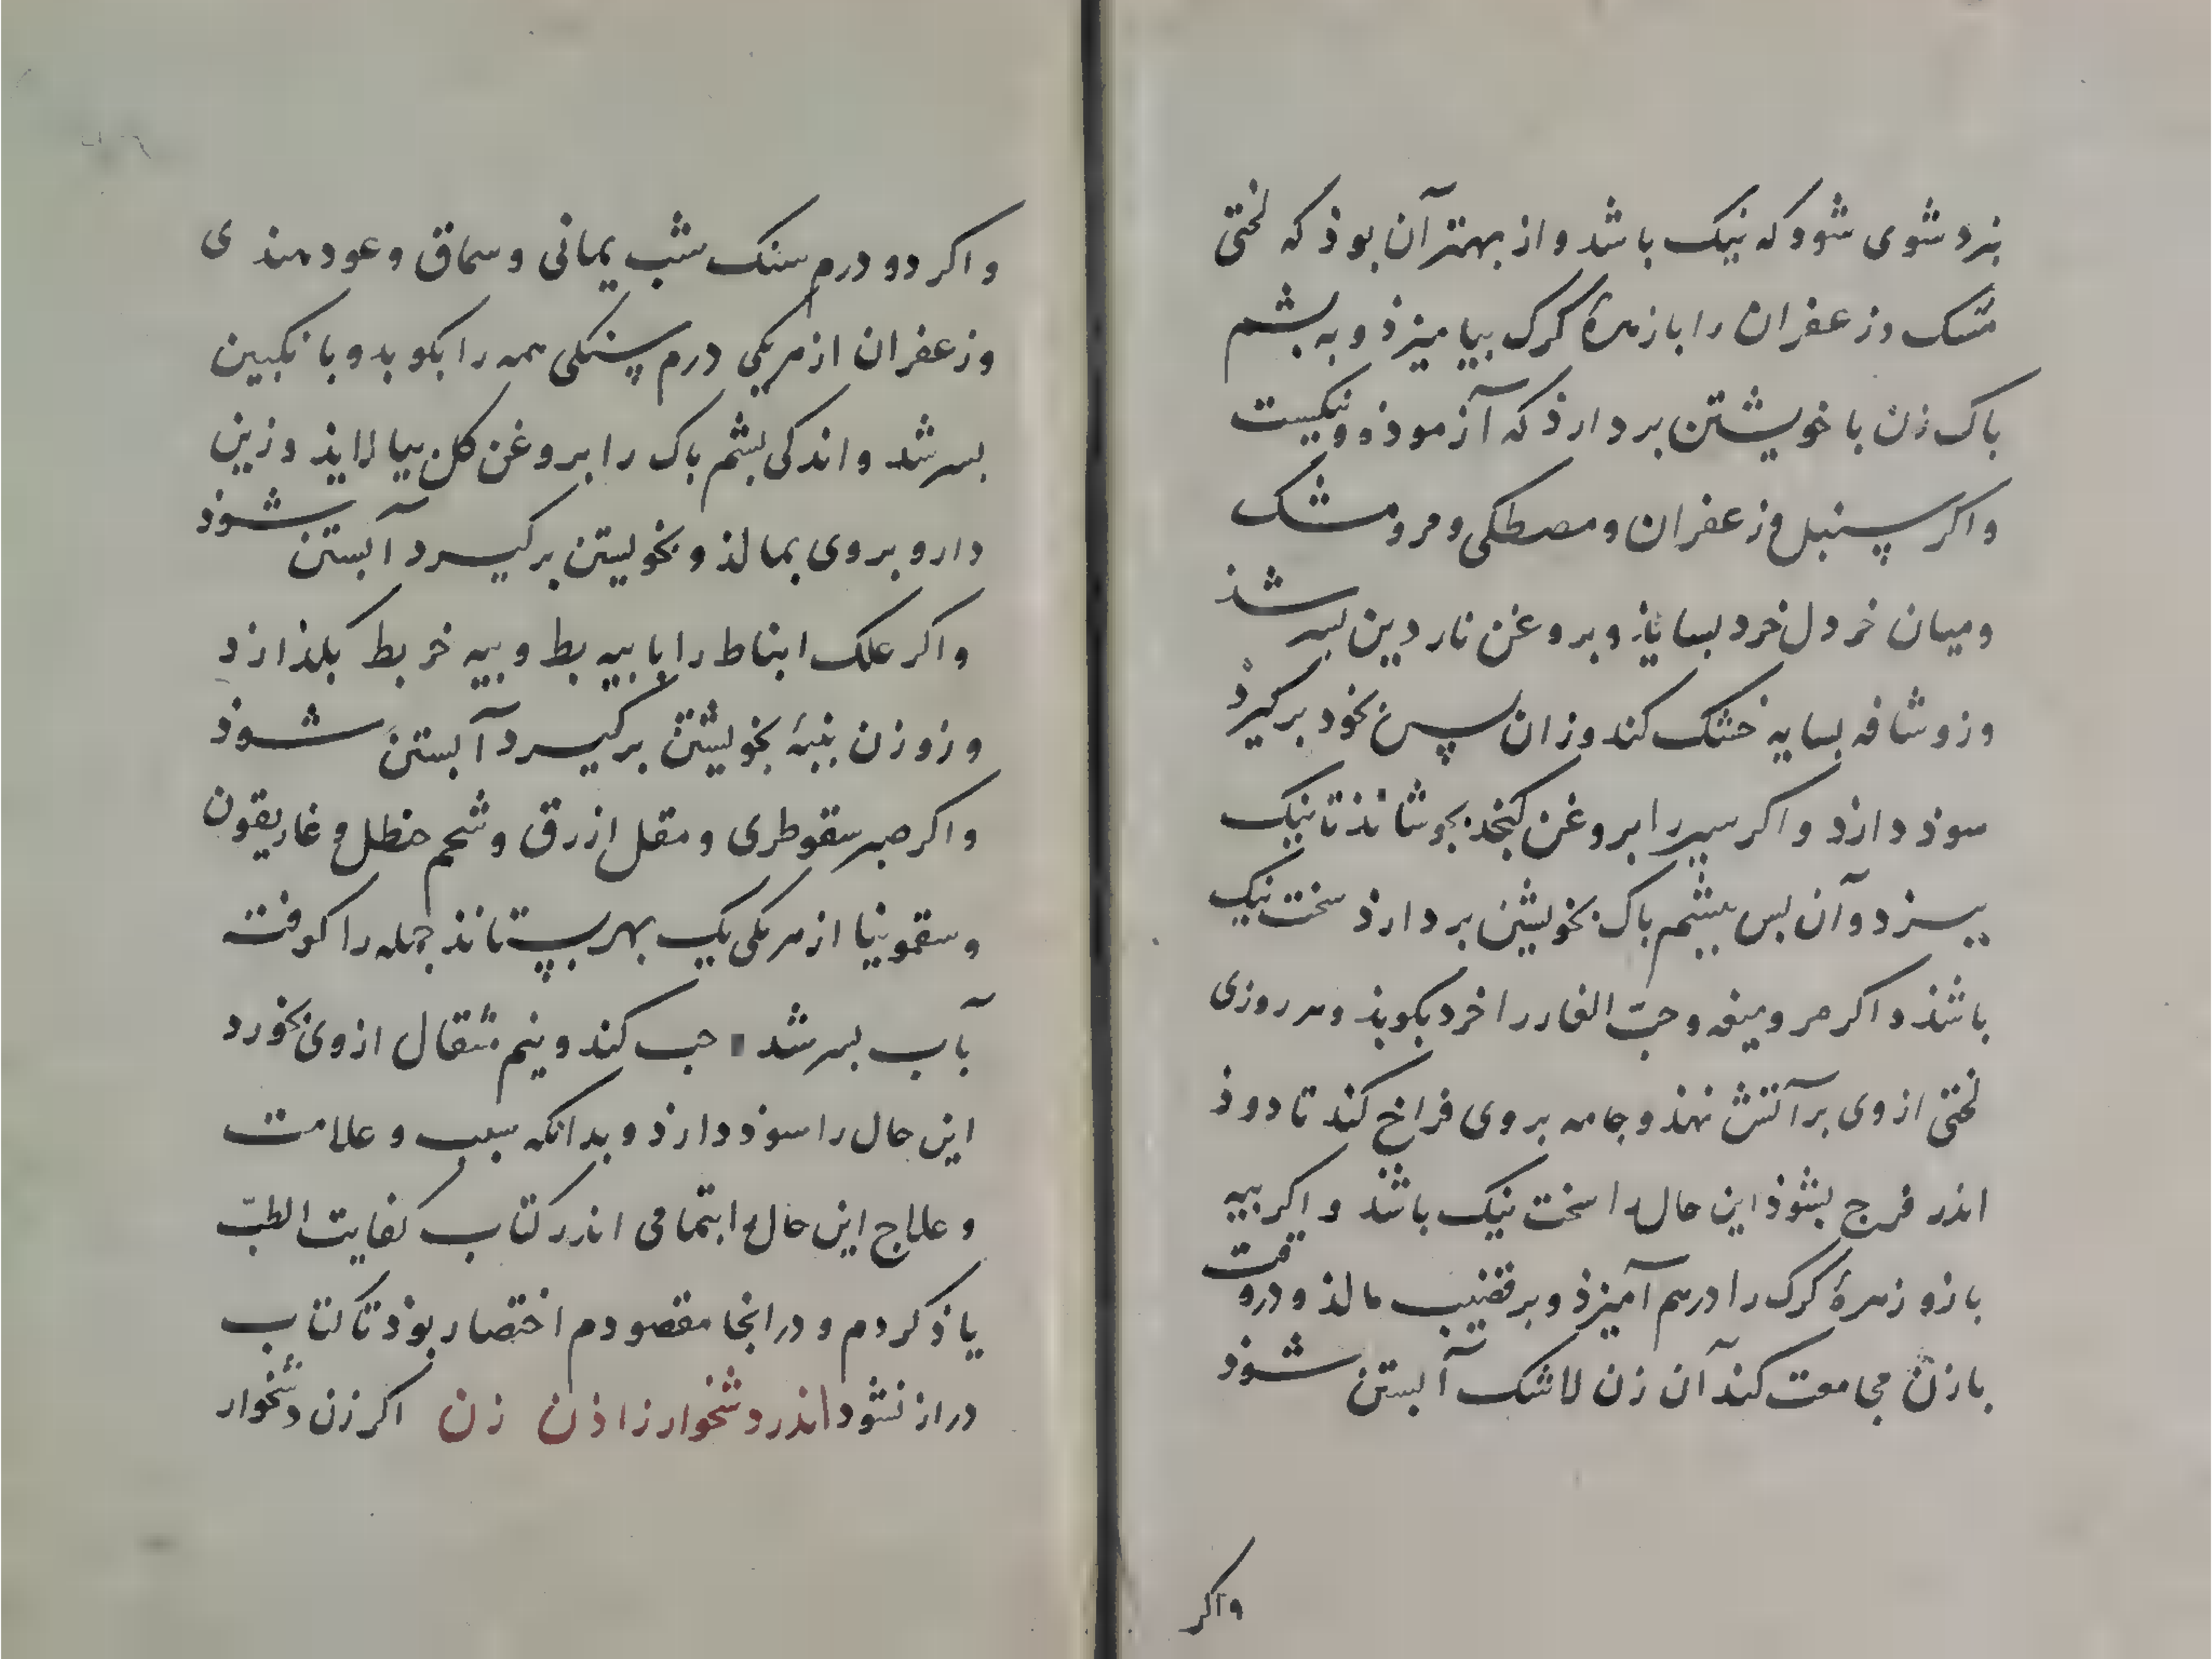 بنزد شوی شود که نیک باشد و از بهتر آن بوذ که لختی
مشک و زعفران را با زهرهٔ کرک بیامیزذ و به بشم
باک زن با خویشتن بردارذ که آزموذه و نیکست
واکر سنبل و زعفران و مصطکی و مر و مشک
و میان خردل خرد بسایذ و بروغن ناردین بسرشذ
وزو شافه بسایه خشک کند وزان پس بخود برگیرذ
سوذ دارذ واکر سیر را بروغن کنجد بجوشانذ تا نیک
بپزد و آن بس ببشم باک بخویشتن بردارذ سخت نیک
باشذ و اکر مر و میعه و حبّ الغار را خرد بکوبذ و هر روزی
لختی از وی بر آتش نهذ و جامه بروی فراخ کند تا دوذ
اندر فرج بشوذ این حال را سخت نیک باشذ و اکر بیه
بازو زهرهٔ کرک را درهم آمیزذ و بر قضیب مالذ و در وقت
با زن مجامعت کند آن زن لاشک آبستن شوذ
واکر
واکر دو درم سنک شب یمانی و سماق و عود هندی
و زعفران از هر یکی درم سنکی همه را بکوبد و بانکبین
بسرشد و اندکی بشم باک را بروغن کل بیالایذ و زین
دارو بروی بمالذ و بخویشتن برکیرد آبستن شوذ
واکر علک ابناط را با بیه بط و بیه خربط بکدازد
وزو زن بنبهٔ بخویشتن برکیرد آبستن شوذ
واکر صبر سقوطری و مقل ازرق و شحم حنظل و غاریقون
و سقمونیا از هر یکی یک بهر بستانذ جمله را کوفته
بآب بسرشد حب کند و نیم مثقال از وی بخورد
این حال را سوذ دارذ و بدانکه سبب و علامت
و علاج این حال را بتمامی اندر کتاب کفایت الطبّ
یاذ کردم و درانجا مقصودم اختصار بوذ تا کتاب
دراز نشود اندر دشخوار زاذن زن اکر زن دشخوار